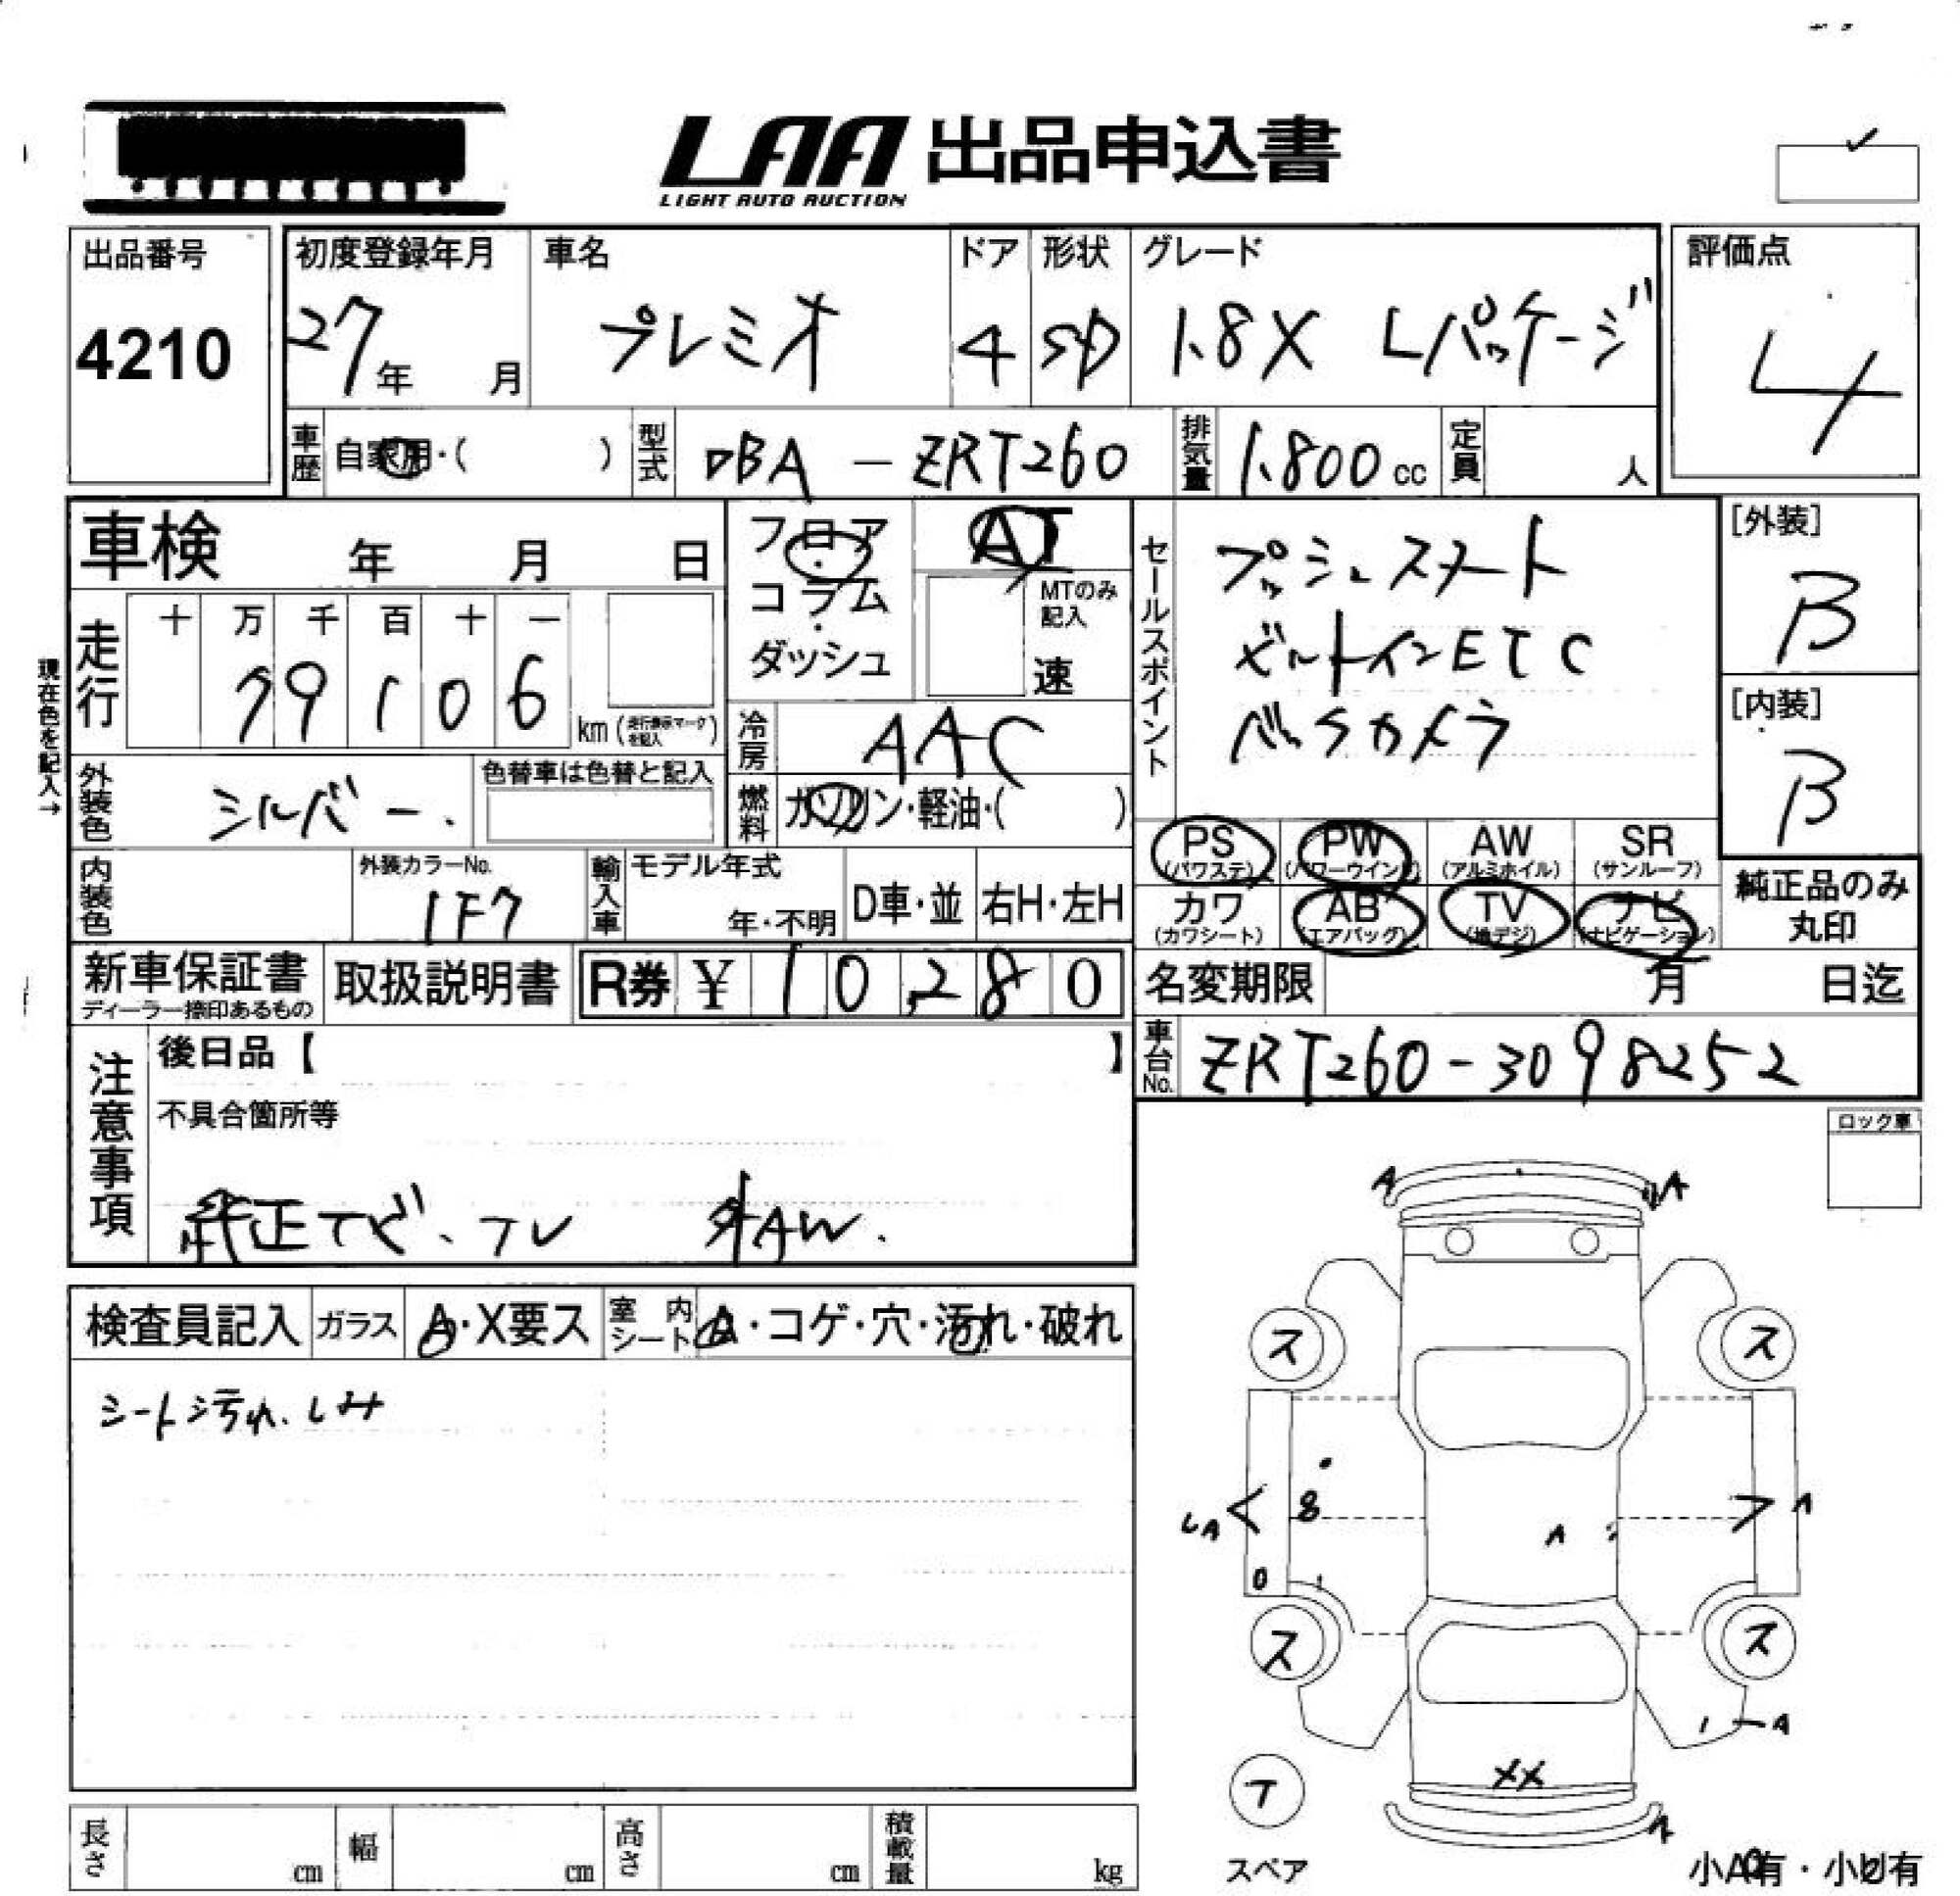 LAA 出品申込書
LIGHT AUTO AUCTION
出品番号
4210
初度登録年月
27年 月
車名
プレミオ
ドア
4
形状
SD
グレード
1.8X Lパッケージ
評価点
4
車歴 自家用・( )
型式 DBA - ZRT260
排気量 1.800 cc
定員 人
車検 年 月 日
フロア・コラム・ダッシュ
AT
MTのみ記入
速
セールスポイント
プッシュスタート
ビルトインETC
バックカメラ
[外装]
B
[内装]
B
現在色を記入→
走行 十 万 千 百 十 一
79106 km (走行表示マークを記入)
冷房 AAC
燃料 ガソリン・軽油・( )
外装色 シルバー.
色替車は色替と記入
PS (パワステ) PW (パワーウインド) AW (アルミホイル) SR (サンルーフ)
カワ (カワシート) AB (エアバッグ) TV (地デジ) ナビ (ナビゲーション)
純正品のみ丸印
内装色
外装カラーNo.
1F7
輸入車 モデル年式
年・不明 D車・並 右H・左H
新車保証書
ディーラー捺印あるもの
取扱説明書
R券 ¥ 10,280
名変期限 月 日迄
車台No. ZRT260-3098252
注意事項
後日品【 】
不具合箇所等
純正ナビ、テレ 外AW.
ロック車
検査員記入 ガラス A・X要ス 室内シート A・コゲ・穴・汚れ・破れ
シート汚れ、しみ
A A
ス ス
8
A A
0
ス ス
A
XX
A
テ
スペア
小A有・小U有
長さ cm 幅 cm 高さ cm 積載量 kg